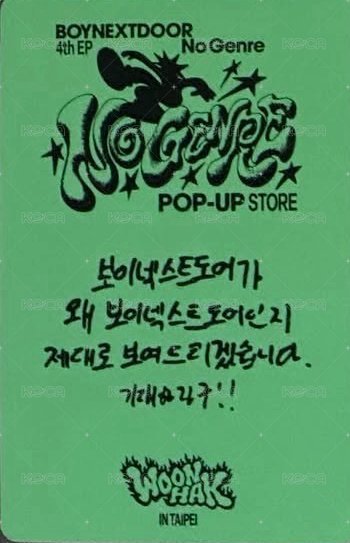 BOYNEXTDOOR
4th EP No Genre
NO GENRE
POP-UP STORE
보이넥스트도어가
왜 보이넥스트도어인지
제대로 보여드리겠습니다.
기대해주!!
WOON
HAK
IN TAIPEI
KOCA